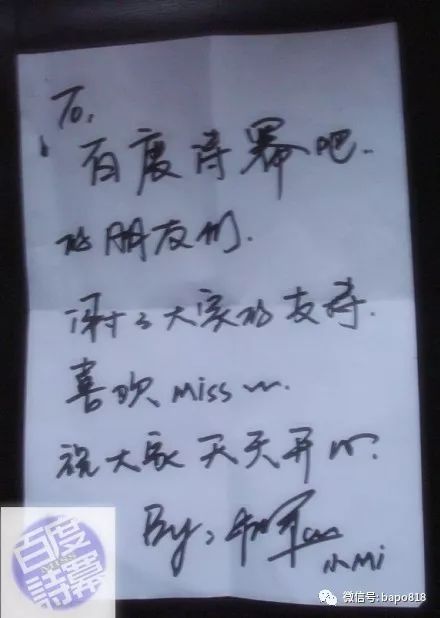 To,
百度诗幂吧.
的朋友们.
谢谢大家的支持.
喜欢 miss~.
祝大家天天开心.
By: 杨幂
小Mi
百度
微信号: bapo818